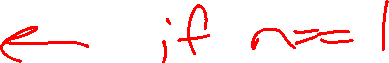 ← if n==1